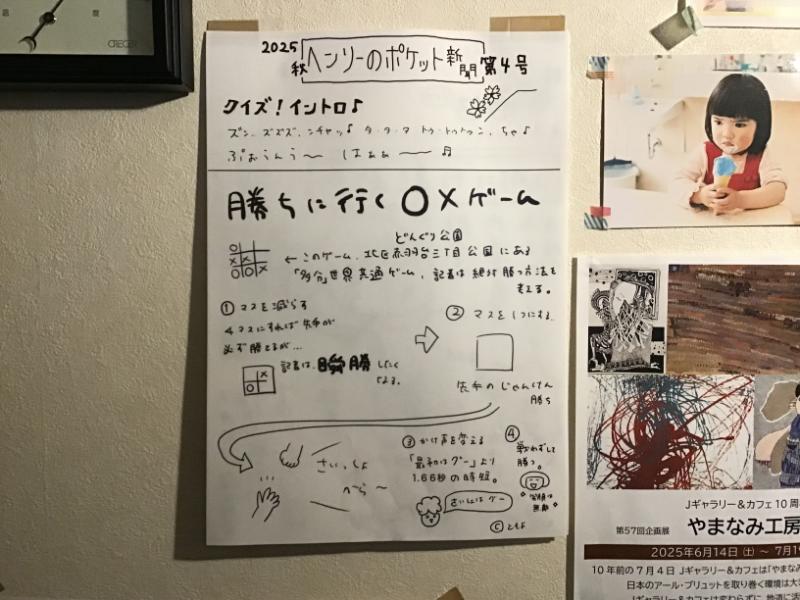 CRECER
2025
秋 ヘンリーのポケット新聞 第4号
クイズ!イントロ♪
ズン、ズズズ、ンチャッ♪ タ・タ・タ トゥ・トゥトゥン、ちゃ♪
ぷおぅんぅ〜 はぁぁ〜 ♬
勝ちに行く○×ゲーム
どんぐり公園
← このゲーム、北区赤羽台三丁目公園にある
「多分」世界共通ゲーム、記者は絶対勝つ方法を
考える。
① マスを減らす
4マスにすれば先手が
必ず勝てるが…
記者は、瞬勝したく
なる。
② マスを1つにする。
先手のじゃんけん
勝ち
さいっしょ
へ〜ら〜
③ かけ声を変える
「最初はグー」より
1.66秒の時短。
さいしょは グー
④
戦わずして
勝つ。
笑顔は
無敵
© ともよ
Jギャラリー&カフェ10周
第57回企画展 やまなみ工房
2025年6月14日(土)〜 7月1
10年前の7月4日 Jギャラリー&カフェは「やまなみ
日本のアール・ブリュットを取り巻く環境は大
Jギャラリー&カフェは変わらずに、地道に活